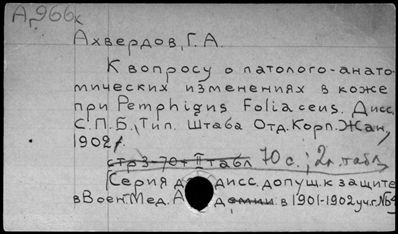 А,966к
Ахвердов, Г. А.
К вопросу о патолого-анато-
мических изменениях в коже
при Pemphigus Foliaceus. Дисс.
С.П.Б., Тип. Штаба Отд. Корп. Жан.,
1902 г.
стр 3-70 + II табл 70 с.; 2 л. табл.
(Серия дисс. допущ. к защите
в Воен. Мед. А в 1901-1902 уч. г. №